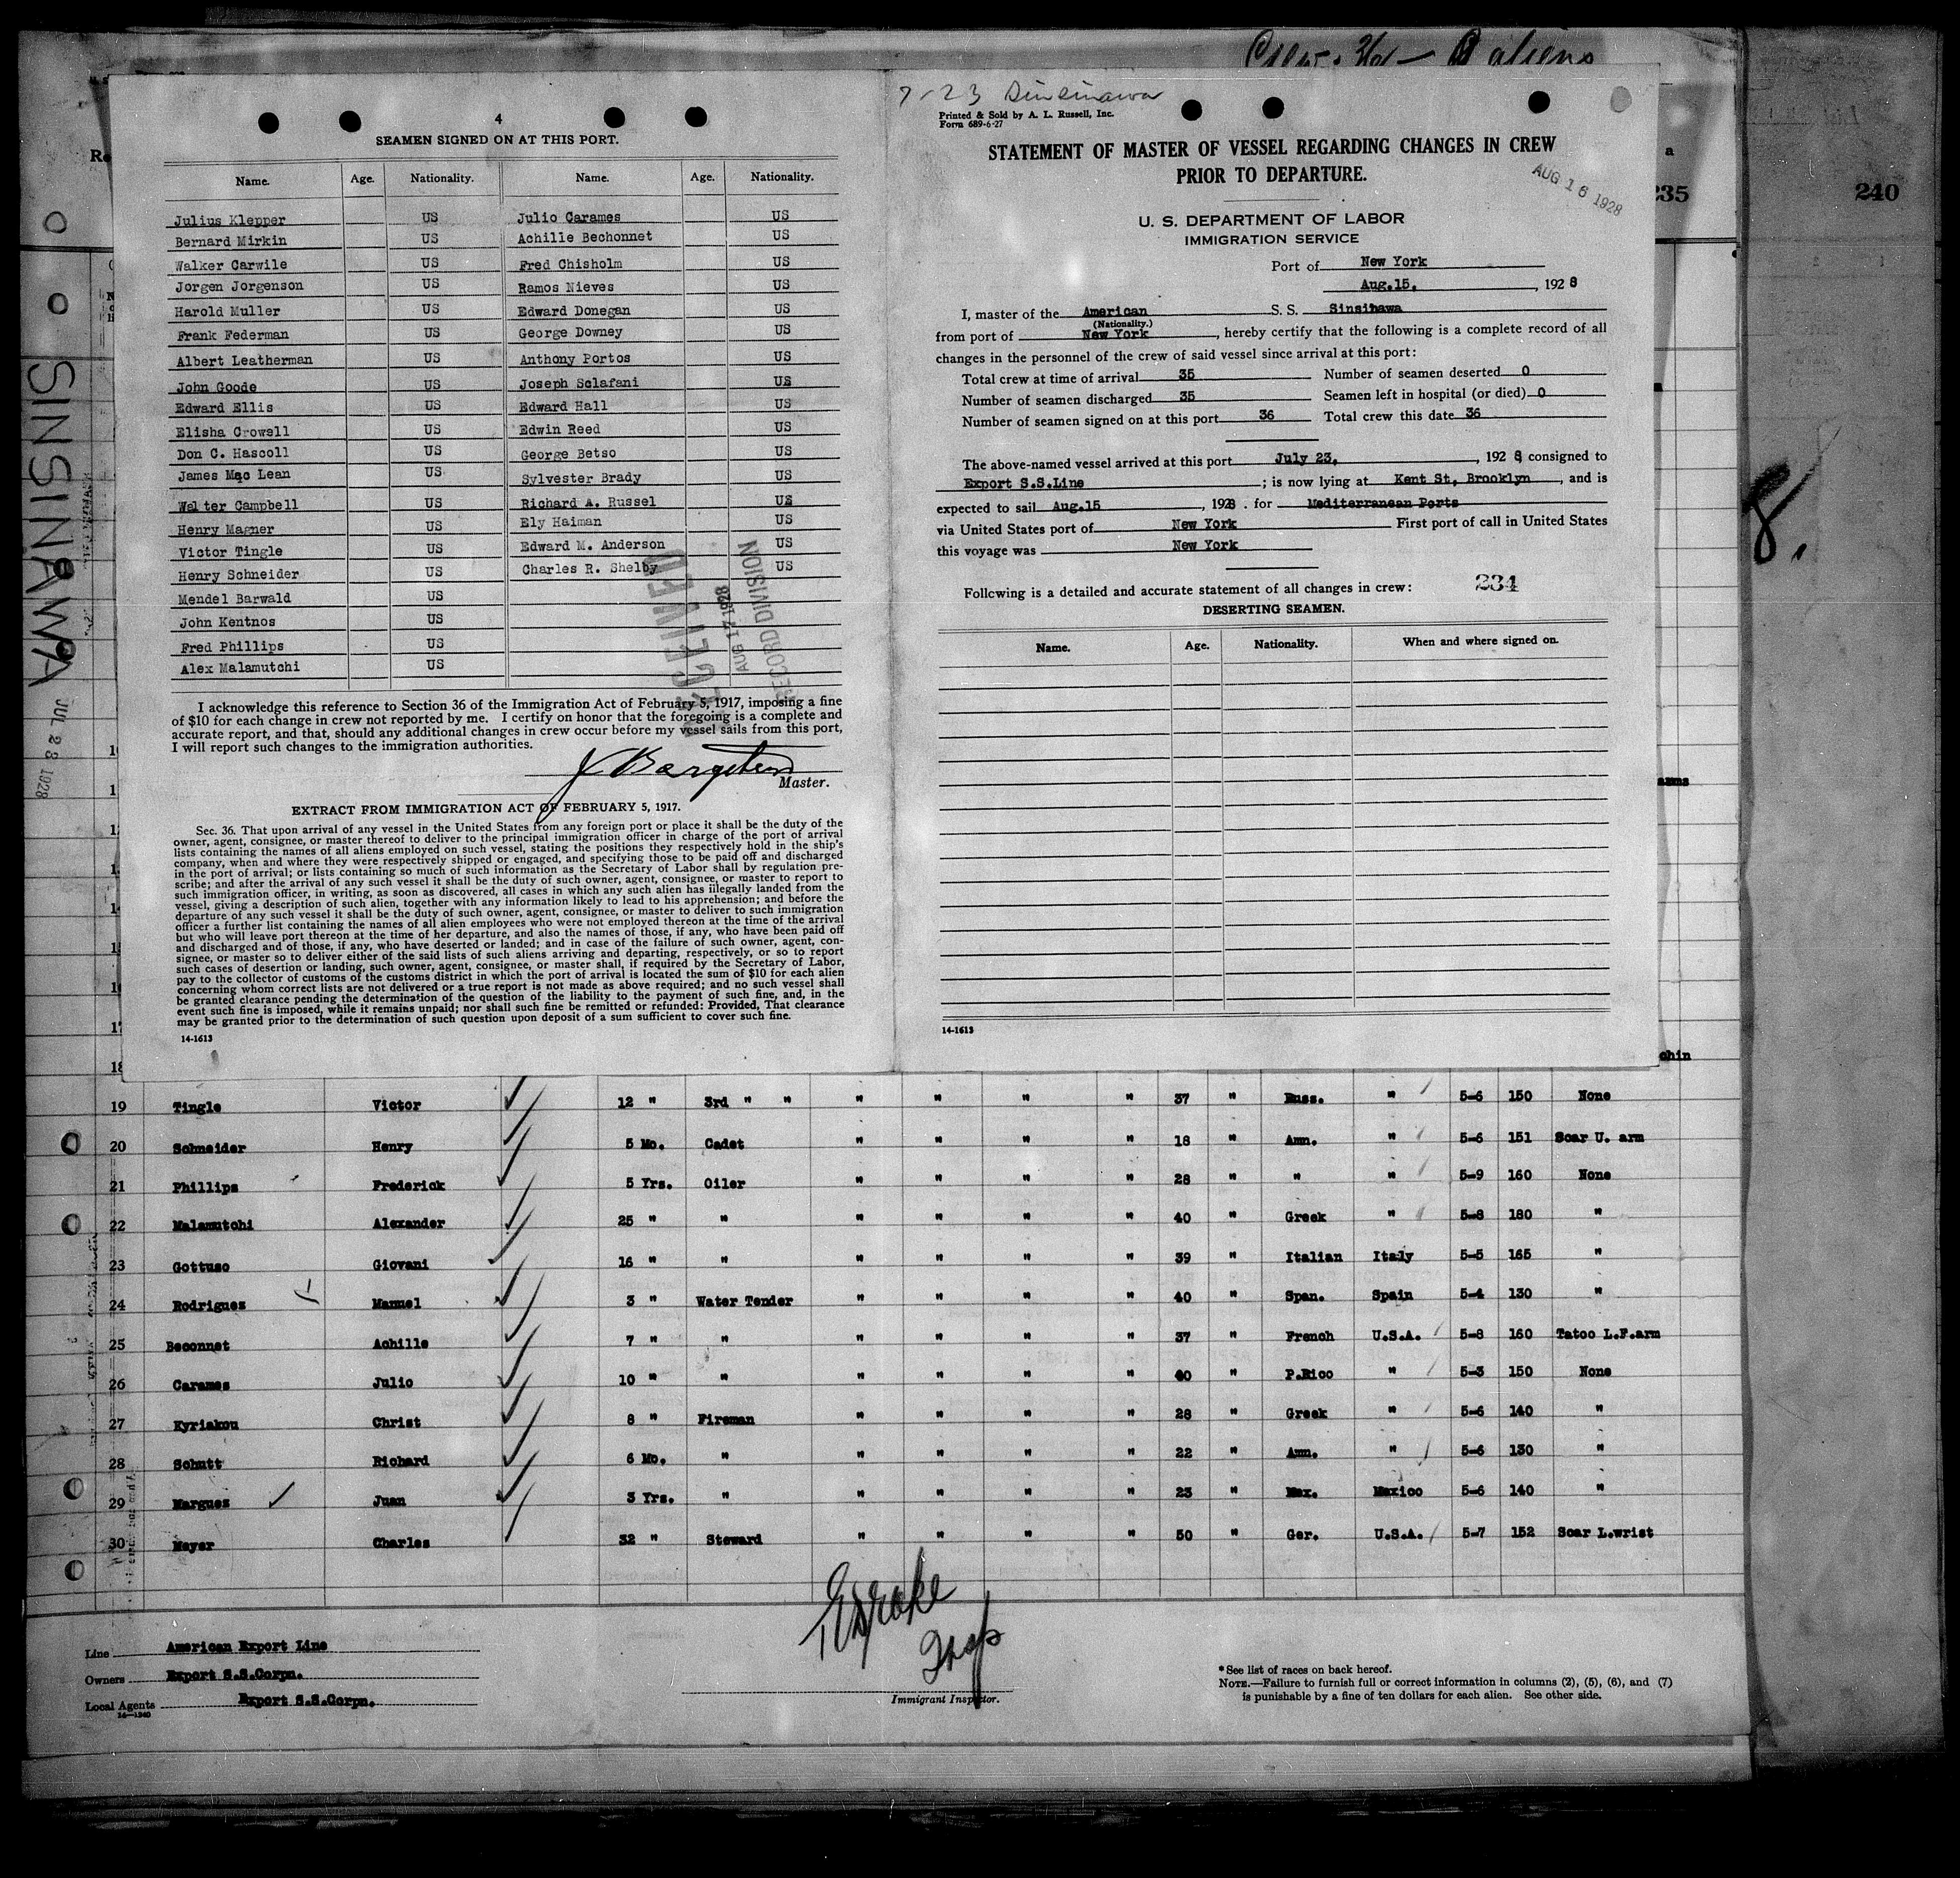 4
SEAMEN SIGNED ON AT THIS PORT.
Name. Age. Nationality. Name. Age. Nationality.
Julius Klepper US Julio Carames US
Bernard Mirkin US Achille Bechonnet US
Walker Carwile US Fred Chisholm US
Jorgen Jorgenson US Ramos Nieves US
Harold Muller US Edward Donegan US
Frank Federman US George Downey US
Albert Leatherman US Anthony Portos US
John Goode US Joseph Sclafani US
Edward Ellis US Edward Hall US
Elisha Crowell US Edwin Reed US
Don C. Hascoll US George Betso US
James Mac Lean US Sylvester Brady US
Walter Campbell US Richard A. Russel US
Henry Magner US Ely Haiman US
Victor Tingle US Edward M. Anderson US
Henry Schneider US Charles R. Shelby US
Mendel Barwald US
John Kentnos US
Fred Phillips US
Alex Malamutchi US
RECEIVED
AUG 17 1928
RECORD DIVISION
I acknowledge this reference to Section 36 of the Immigration Act of February 5, 1917, imposing a fine
of $10 for each change in crew not reported by me. I certify on honor that the foregoing is a complete and
accurate report, and that, should any additional changes in crew occur before my vessel sails from this port,
I will report such changes to the immigration authorities.
Master.
EXTRACT FROM IMMIGRATION ACT OF FEBRUARY 5, 1917.
Sec. 36. That upon arrival of any vessel in the United States from any foreign port or place it shall be the duty of the
owner, agent, consignee, or master thereof to deliver to the principal immigration officer in charge of the port of arrival
lists containing the names of all aliens employed on such vessel, stating the positions they respectively hold in the ship's
company, when and where they were respectively shipped or engaged, and specifying those to be paid off and discharged
in the port of arrival; or lists containing so much of such information as the Secretary of Labor shall by regulation pre-
scribe; and after the arrival of any such vessel it shall be the duty of such owner, agent, consignee, or master to report to
such immigration officer, in writing, as soon as discovered, all cases in which any such alien has illegally landed from the
vessel, giving a description of such alien, together with any information likely to lead to his apprehension; and before the
departure of any such vessel it shall be the duty of such owner, agent, consignee, or master to deliver to such immigration
officer a further list containing the names of all alien employees who were not employed thereon at the time of the arrival
but who will leave port thereon at the time of her departure, and also the names of those, if any, who have been paid off
and discharged and of those, if any, who have deserted or landed; and in case of the failure of such owner, agent, con-
signee, or master so to deliver either of the said lists of such aliens arriving and departing, respectively, or so to report
such cases of desertion or landing, such owner, agent, consignee, or master shall, if required by the Secretary of Labor,
pay to the collector of customs of the customs district in which the port of arrival is located the sum of $10 for each alien
concerning whom correct lists are not delivered or a true report is not made as above required; and no such vessel shall
be granted clearance pending the determination of the question of the liability to the payment of such fine, and, in the
event such fine is imposed, while it remains unpaid; nor shall such fine be remitted or refunded: Provided, That clearance
may be granted prior to the determination of such question upon deposit of a sum sufficient to cover such fine.
14-1613
7-23 Sinsinawa
Printed & Sold by A. L. Russell, Inc.
Form 689-6-27
STATEMENT OF MASTER OF VESSEL REGARDING CHANGES IN CREW
PRIOR TO DEPARTURE.
AUG 16 1928
U. S. DEPARTMENT OF LABOR
IMMIGRATION SERVICE
Port of New York
Aug.15, , 1928
I, master of the American S. S. Sinsihawa
(Nationality.)
from port of New York , hereby certify that the following is a complete record of all
changes in the personnel of the crew of said vessel since arrival at this port:
Total crew at time of arrival 35 Number of seamen deserted 0
Number of seamen discharged 35 Seamen left in hospital (or died) 0
Number of seamen signed on at this port 36 Total crew this date 36
The above-named vessel arrived at this port July 23, , 1928, consigned to
Export S.S.Line ; is now lying at Kent St, Brooklyn , and is
expected to sail Aug.15 , 1928 . for Mediterranean Ports
via United States port of New York First port of call in United States
this voyage was New York
Following is a detailed and accurate statement of all changes in crew: 234
DESERTING SEAMEN.
Name. Age. Nationality. When and where signed on.
14-1613
235
240
8.
SINSINAWA
JUL 28 1928
19 Tingle Victor 12 " 3rd " " " " " " 37 " Russ. " 5-6 150 None
20 Schneider Henry 5 Mo. Cadet " " " " 18 " Amn. " 5-6 151 Scar U. arm
21 Phillips Frederick 5 Yrs. Oiler " " " " 28 " " " 5-9 160 None
22 Malamutchi Alexander 25 " " " " " " 40 " Greek " 5-8 180 "
23 Gottuso Giovani 16 " " " " " " 39 " Italian Italy 5-5 165 "
24 Rodrigues Manuel 3 " Water Tender " " " " 40 " Span. Spain 5-4 130 "
25 Beconnet Achille 7 " " " " " " 37 " French U.S.A. 5-8 160 Tatoo L.F.arm
26 Carames Julio 10 " " " " " " 40 " P.Rico " 5-3 150 None
27 Kyriakou Christ 8 " Fireman " " " " 28 " Greek " 5-6 140 "
28 Schutt Richard 6 Mo. " " " " " 22 " Amn. " 5-6 130 "
29 Margues Juan 3 Yrs. " " " " " 23 " Mex. Mexico 5-6 140 "
30 Meyer Charles 32 " Steward " " " " 50 " Ger. U.S.A. 5-7 152 Scar L.wrist
Line American Export Line
Owners Export S.S.Corpn.
Local Agents Export S.S.Corpn.
14-1240
Immigrant Inspector.
*See list of races on back hereof.
NOTE.—Failure to furnish full or correct information in columns (2), (5), (6), and (7)
is punishable by a fine of ten dollars for each alien. See other side.